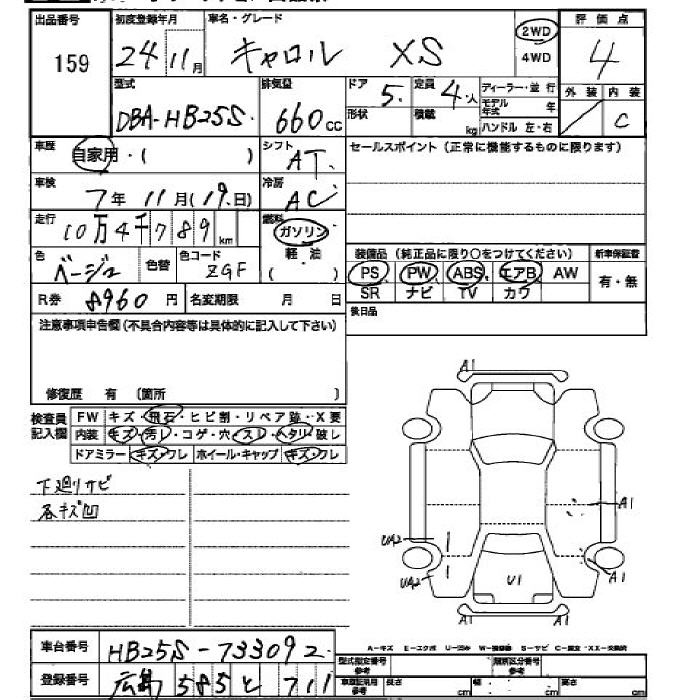 出品番号 初度登録年月 車名・グレード 2WD 評価点
159 24 11月 キャロル XS 4WD 4
型式 排気量 ドア 定員 ディーラー・並行 外装 内装
DBA-HB25S 660cc 5 4人 モデル年式 年 C
形状 積載 kg ハンドル 左・右
車歴 自家用・( ) シフト AT セールスポイント (正常に機能するものに限ります)
車検 7年 11月(19日) 冷房 AC
走行 10万4千789km 燃料 ガソリン
軽油
( )
色 ベージュ 色替 色コード ZGF
装備品 (純正品に限り○をつけてください) 新車保証書
PS PW ABS エアB AW 有・無
SR ナビ TV カワ
R券 8960円 名変期限 月 日 後日品
注意事項申告欄(不具合内容等は具体的に記入して下さい)
修復歴 有 (箇所 )
検査員記入欄 FW キズ・飛石・ヒビ割・リペア跡・X要
内装 キズ・汚レ・コゲ・穴・スレ・ヘタリ・破レ
ドアミラー キズ・ワレ ホイール・キャップ キズ・ワレ
下廻りサビ
各キズ凹
A1
A1
UA2
UA2 U1 A1
A1 A1
車台番号 HB25S-733092
A-キズ E-エクボ U-凹み W-補修跡 S-サビ C-腐食 XX-交換済
登録番号 広島 585 と 711
型式指定番号 参考 類別区分番号 参考
車庫証明用 参考 長さ cm 幅 cm 高さ cm